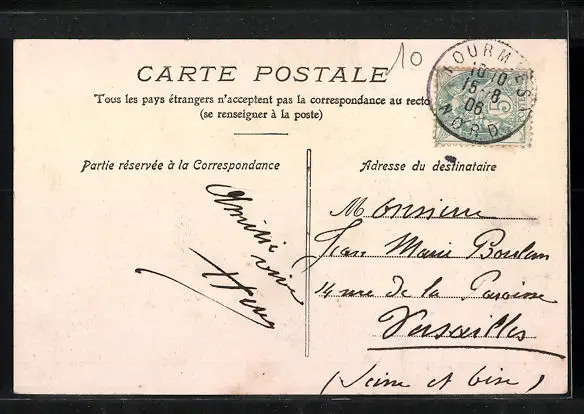 10
CARTE POSTALE
Tous les pays étrangers n'acceptent pas la correspondance au recto
(se renseigner à la poste)
FOURMIES
10 10
15 - 8
06
NORD
Partie réservée à la Correspondance
Amitié
Adresse du destinataire
Monsieur
Jean Marie
14 rue de la Paroisse
Versailles
(Seine et Oise)